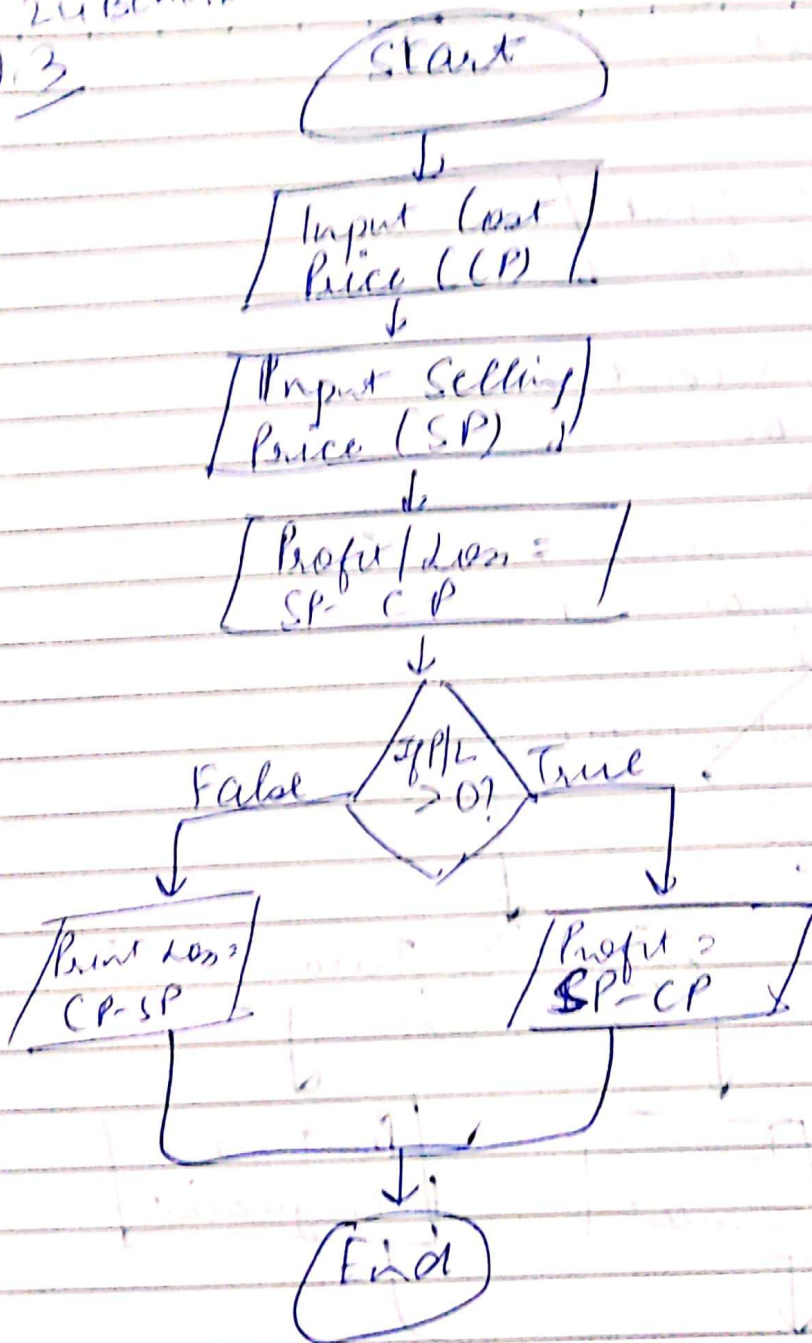 Q.3
Start
Input Cost
Price (CP)
Input Selling
Price (SP)
Profit/Loss =
SP- CP
If P/L
> 0?
False
True
Print Loss =
CP-SP
Profit =
SP-CP
End